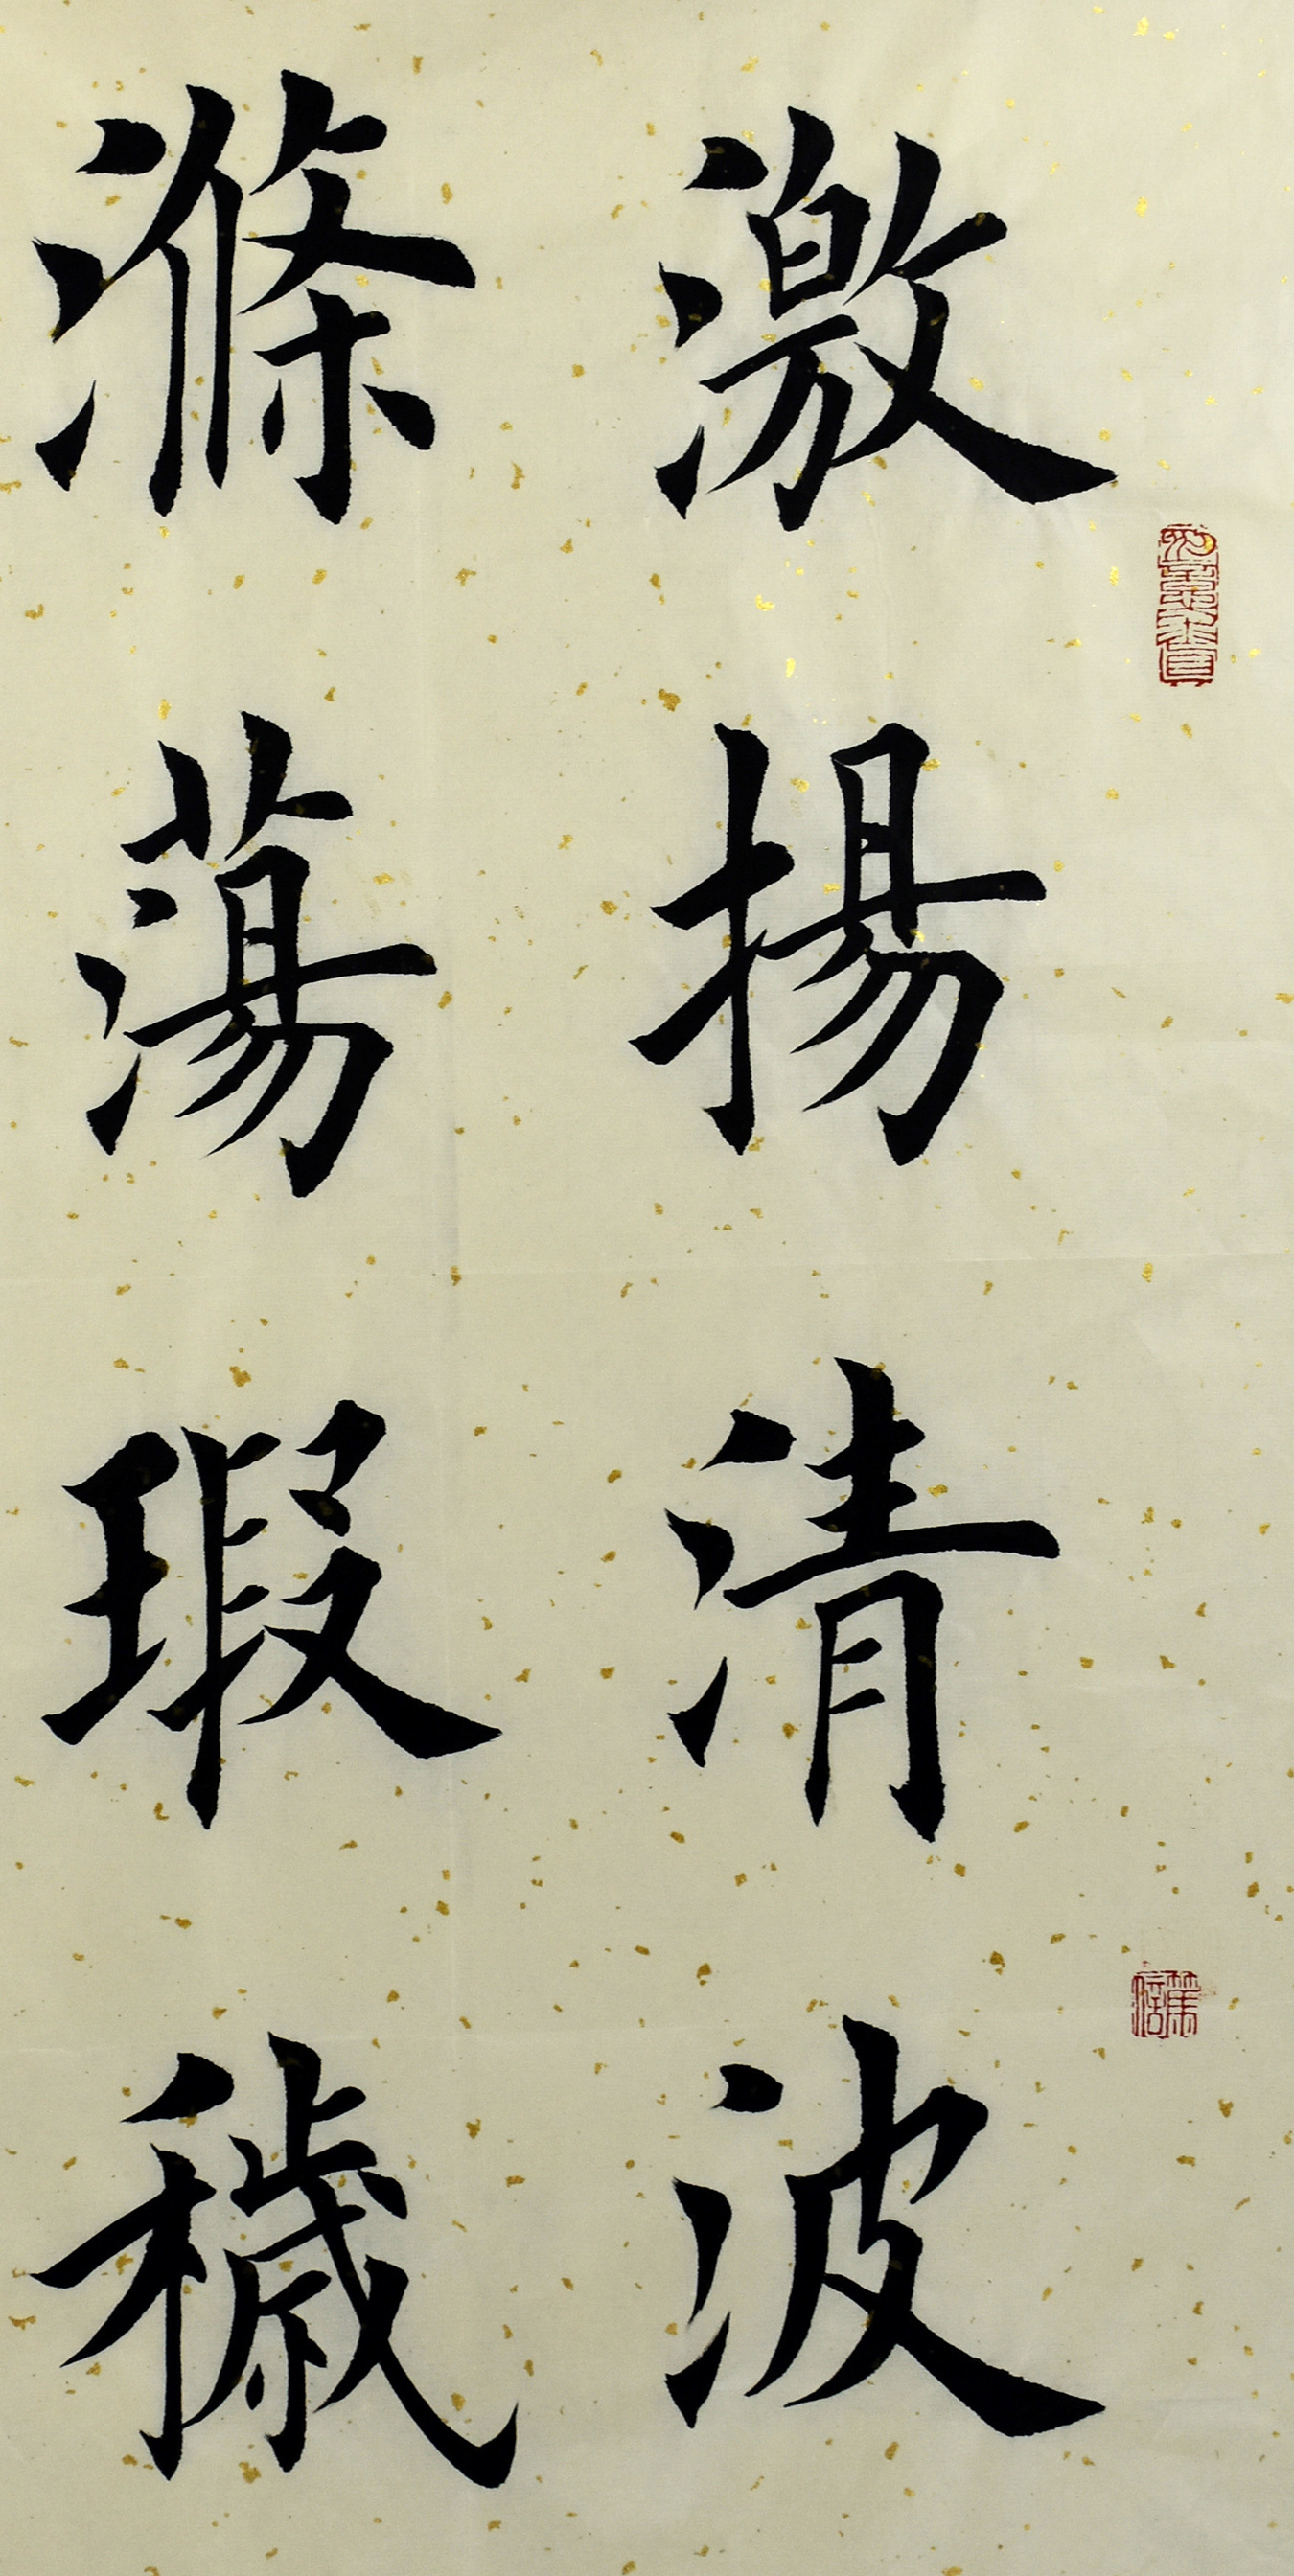 激揚清波
滌蕩瑕穢